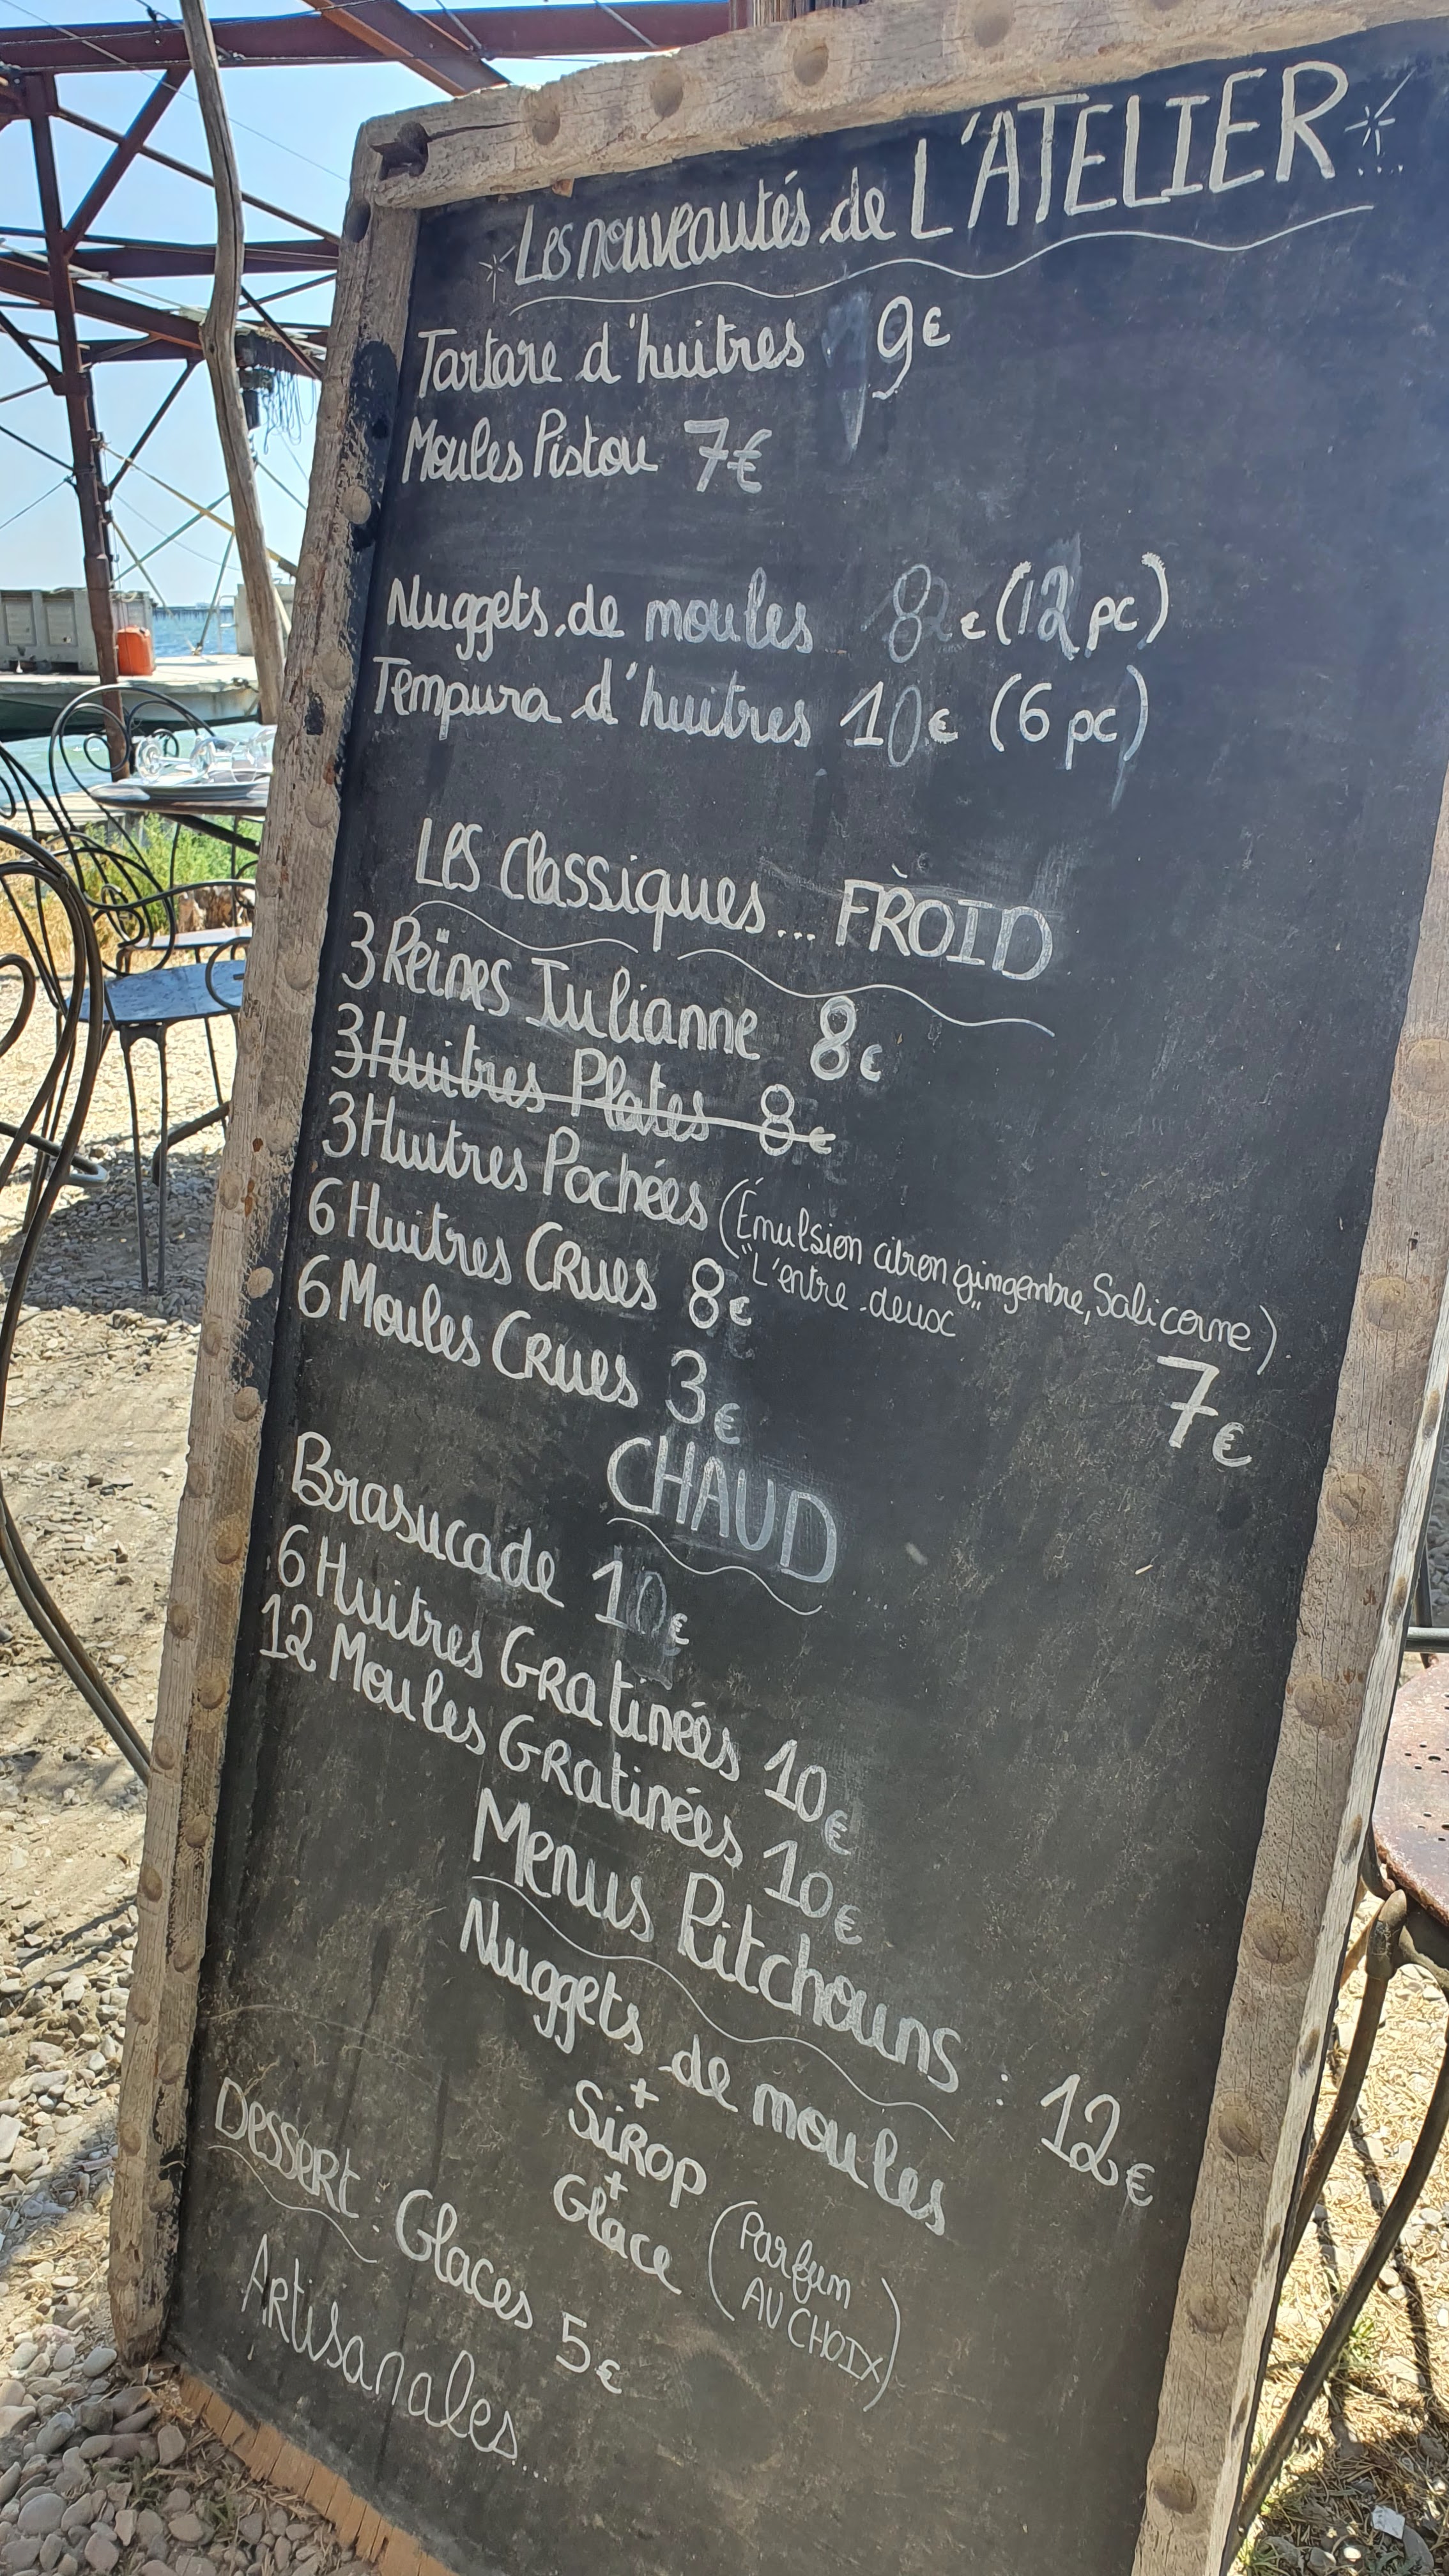 Les nouveautés de L'ATELIER...
Tartare d'huitres 9€
Moules Pistou 7€
Nuggets de moules 8€ (12 pc)
Tempura d'huitres 10€ (6 pc)
Les Classiques... FROID
3 Reines Julianne 8€
3 Huitres Plates 8€
3 Huitres Pochées (Émulsion citron gingembre, Salicorne)
"L'entre-deux" 7€
6 Huitres CRues 8€
6 Moules CRues 3€
CHAUD
Brasucade 10€
6 Huitres GRatinées 10€
12 Moules GRatinées 10€
Menus Pitchouns : 12€
Nuggets de moules
+
SiROP
+
Glace (Parfum
AU CHOIX)
Dessert : Glaces 5€
Artisanales...